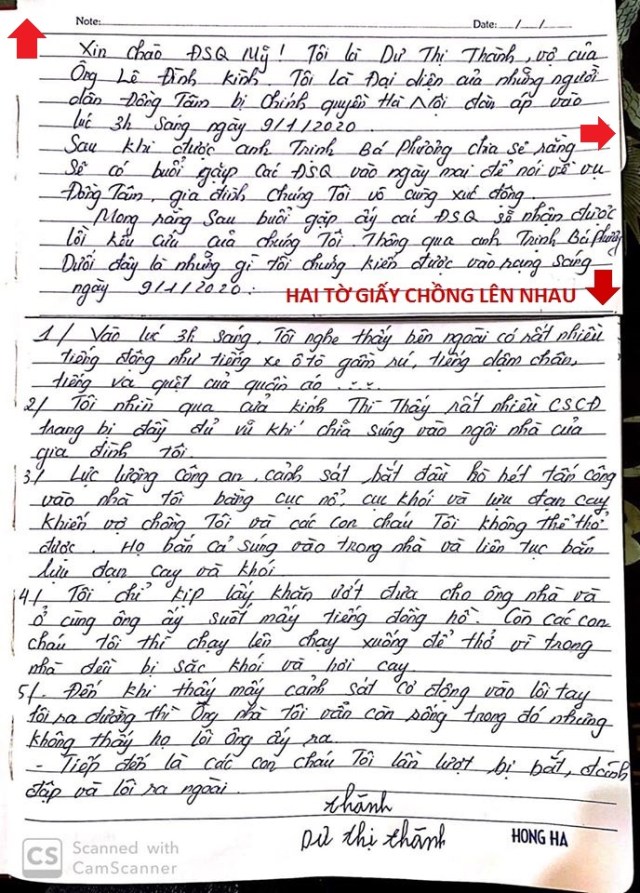 Note: Date: / /
Xin chào ĐSQ Mỹ! Tôi là Dư Thị Thành, vợ của
Ông Lê Đình Kình. Tôi là Đại diện của những người
dân Đồng Tâm bị Chính quyền Hà Nội đàn áp vào
lúc 3h sáng ngày 9/1/2020.
Sau khi được anh Trịnh Bá Phương chia sẻ rằng
sẽ có buổi gặp các ĐSQ vào ngày mai để nói về vụ
Đồng Tâm, gia đình chúng Tôi vô cùng xúc động.
Mong rằng sau buổi gặp ấy các ĐSQ sẽ nhận được
lời kêu cứu của chúng Tôi. Thông qua anh Trịnh Bá Phương
Dưới đây là những gì tôi chứng kiến được vào rạng sáng
ngày 9/1/2020:
HAI TỜ GIẤY CHỒNG LÊN NHAU
1/ Vào lúc 3h sáng, Tôi nghe thấy bên ngoài có rất nhiều
tiếng động như tiếng xe ô tô gầm rú, tiếng dậm chân,
tiếng va quệt của quần áo....
2/ Tôi nhìn qua cửa kính Thì Thấy rất nhiều CSCĐ
trang bị đầy đủ vũ khí chĩa súng vào ngôi nhà của
gia đình tôi.
3/ Lực lượng công an, cảnh sát bắt đầu hò hét tấn công
vào nhà tôi bằng cục nổ, cục khói và lựu đạn cay
khiến vợ chồng Tôi và các con cháu Tôi không thể thở
được. Họ bắn cả súng vào trong nhà và liên tục bắn
lựu đạn cay và khói.
4/ Tôi chỉ kịp lấy khăn ướt đưa cho ông nhà và
ở cùng ông ấy suốt mấy tiếng đồng hồ. Còn các con
cháu tôi thì chạy lên chạy xuống để thở vì trong
nhà đều bị sặc khói và hơi cay.
5/. Đến khi thấy mấy cảnh sát cơ động vào lôi tay
tôi ra đường thì Ông nhà tôi vẫn còn sống trong đó nhưng
không thấy họ lôi ông ấy ra.
- Tiếp đến là các con cháu Tôi lần lượt bị bắt, đánh
đập và lôi ra ngoài.
thành
Dư thị thành
HONG HA
CS Scanned with
CamScanner